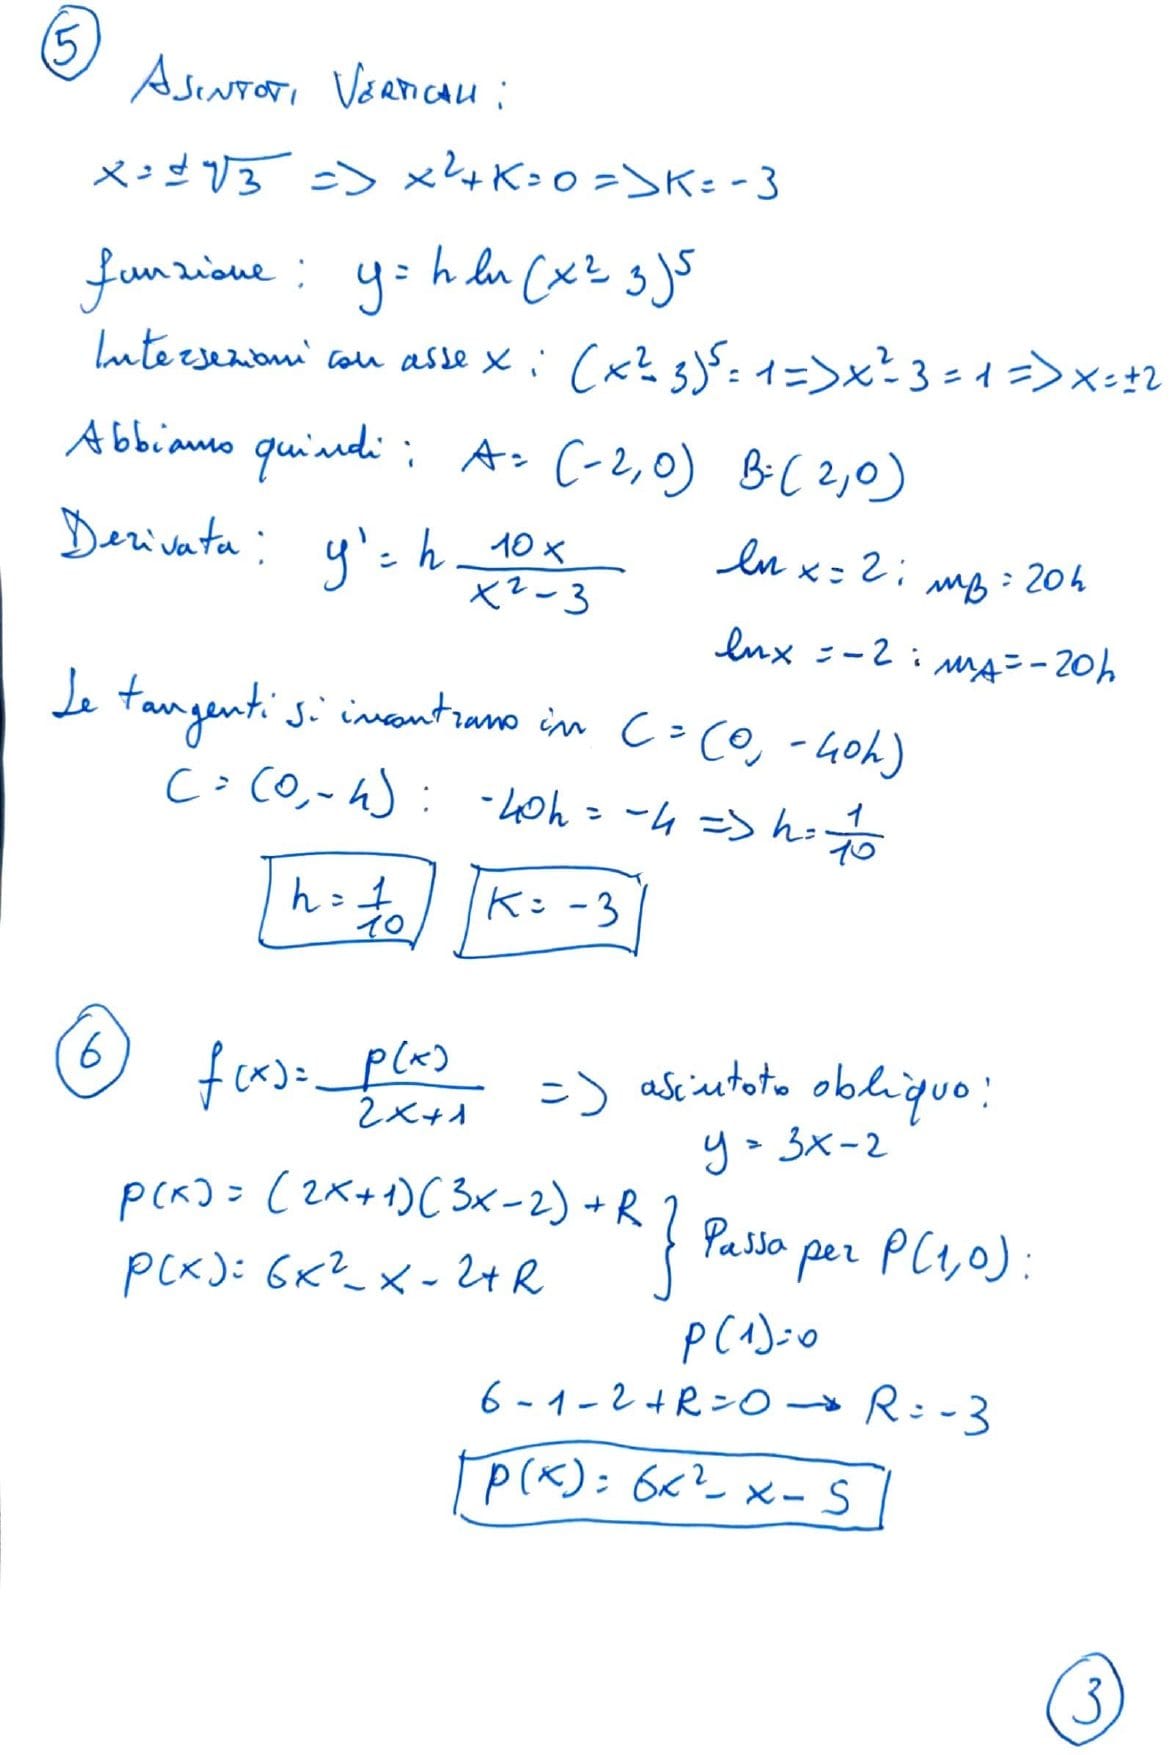 5
ASINTOTI VERTICALI :
x = ± √3 => x² + K = 0 => K = -3
funzione : y = h ln (x² - 3)⁵
Intersezioni con asse x : (x² - 3)⁵ = 1 => x² - 3 = 1 => x = ±2
Abbiamo quindi : A = (-2,0) B = (2,0)
Derivata : y' = h 10x / (x² - 3) In x = 2 : mB = 20h
In x = -2 : mA = -20h
Le tangenti si incontrano in C = (0, -40h)
C = (0, -4) : -40h = -4 => h = 1/10
h = 1/10 K = -3
6 f(x) = p(x) / (2x+1) => asintoto obliquo :
y = 3x - 2
p(x) = (2x+1)(3x-2) + R } Passa per P(1,0) :
p(x) = 6x² - x - 2 + R
p(1) = 0
6 - 1 - 2 + R = 0 → R = -3
p(x) = 6x² - x - 5
3